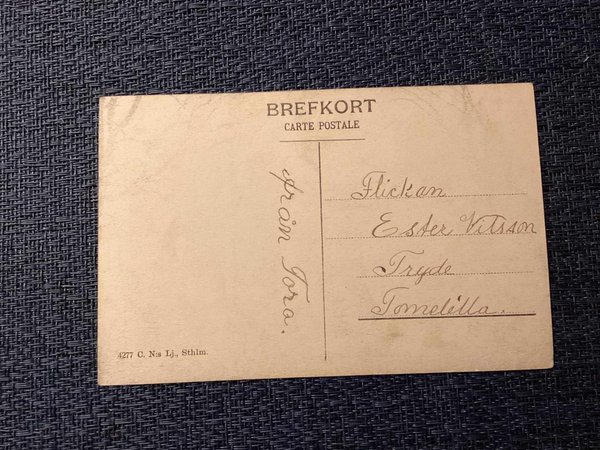 BREFKORT
CARTE POSTALE
från Tora.
Flickan
Ester Vilsson
Tryde
Tomelilla.
4277 C. N:s Lj., Sthlm.